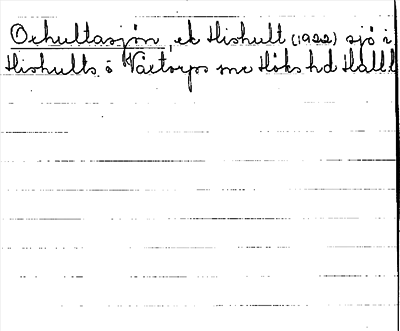 Oxhultasjön, ek Hishult (1922) sjö i
Hishults o Våxtorps snr Höks hd Hall